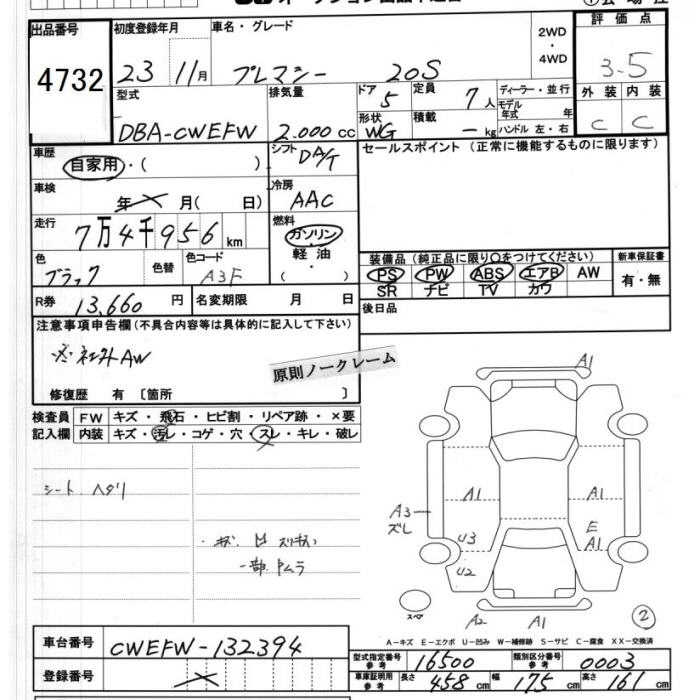 出品番号 初度登録年月 車名・グレード 2WD・4WD 評価点
4732 23 11月 プレマシー 20S 3.5
型式 排気量 ドア 5 定員 7人 ディーラー・並行 外装 内装
DBA-CWEFW 2.000cc 形状 WG 積載 -kg モデル年式 年 C C
ハンドル 左・右
車歴 自家用・( ) シフト DA/T セールスポイント(正常に機能するものに限ります)
車検 年 月( 日) 冷房 AAC
走行 7万4千956km 燃料 ガソリン・軽油・( )
色 ブラック 色替 色コード A3F 装備品(純正品に限り○をつけてください) 新車保証書
PS PW ABS エアB AW 有・無
SR ナビ TV カワ
R券 13,660円 名変期限 月 日 後日品
注意事項申告欄(不具合内容等は具体的に記入して下さい)
AW
原則ノークレーム
修復歴 有〔箇所 〕
検査員 FW キズ・飛石・ヒビ割・リペア跡・×要
記入欄 内装 キズ・汚レ・コゲ・穴・スレ・キレ・破レ
シート ヘタリ
一部 ムラ
A1
A1 A1
A3 ズレ
U3 E A1
U2
スペア A2 A1 2
A-キズ E-エクボ U-凹み W-補修跡 S-サビ C-腐食 XX-交換済
車台番号 CWEFW-132394
登録番号
型式指定番号 参考 16500 類別区分番号 参考 0003
車庫証明用 参考 長さ 458cm 幅 175cm 高さ 161cm